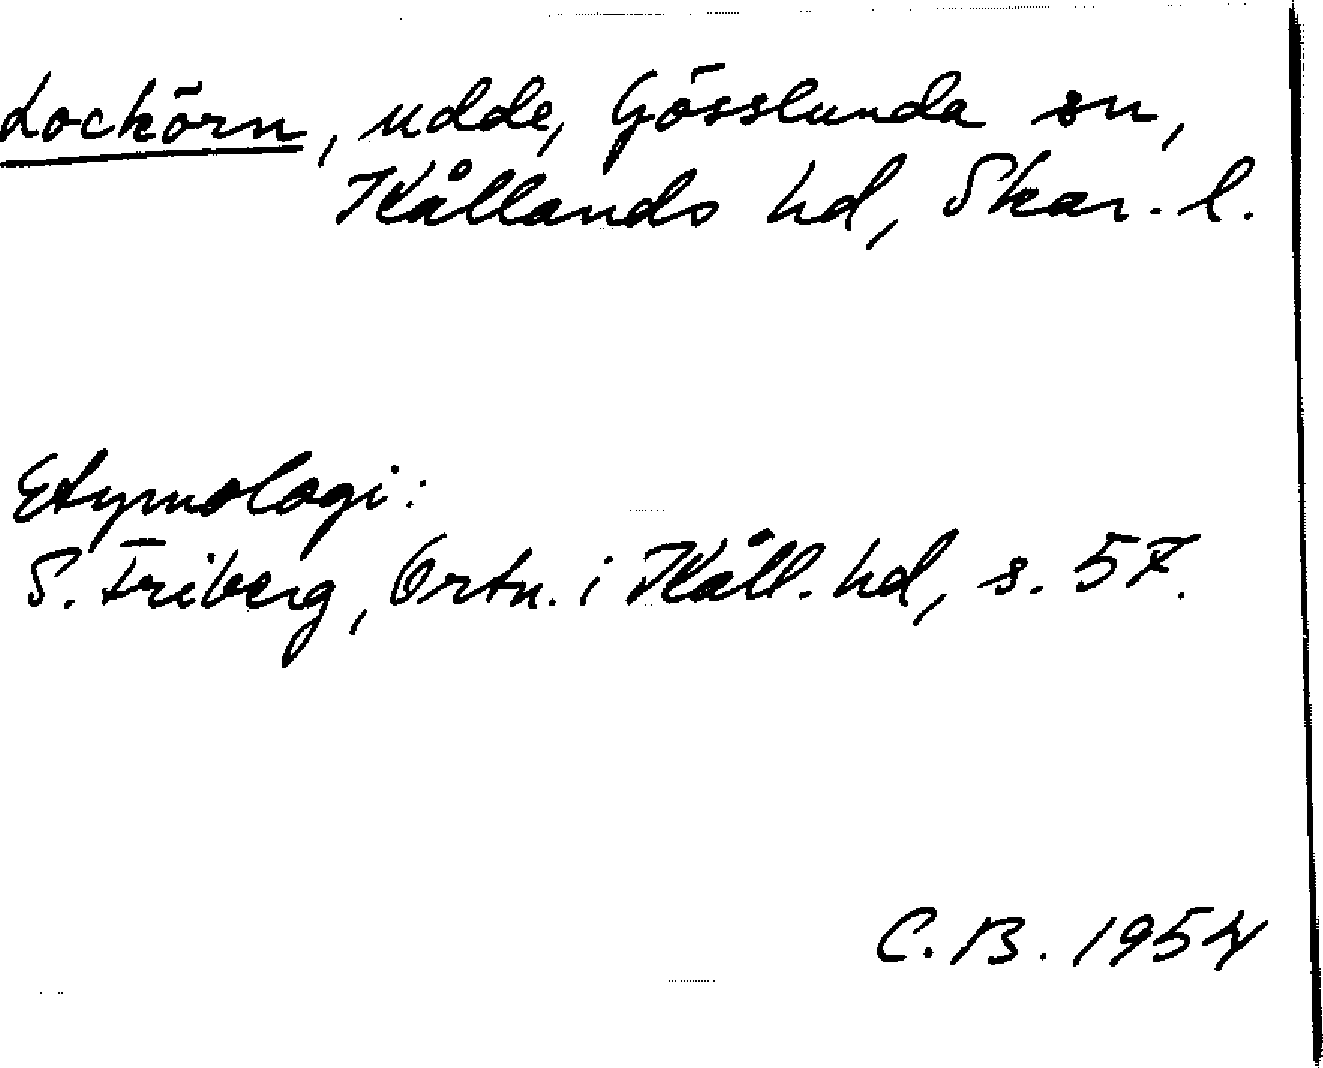 Lockörn, udde, Gösslunda sn,
Kållands hd, Skar. l.
Etymologi:
S. Friberg, Ortn. i Kåll. hd, s. 57.
C. B. 1954